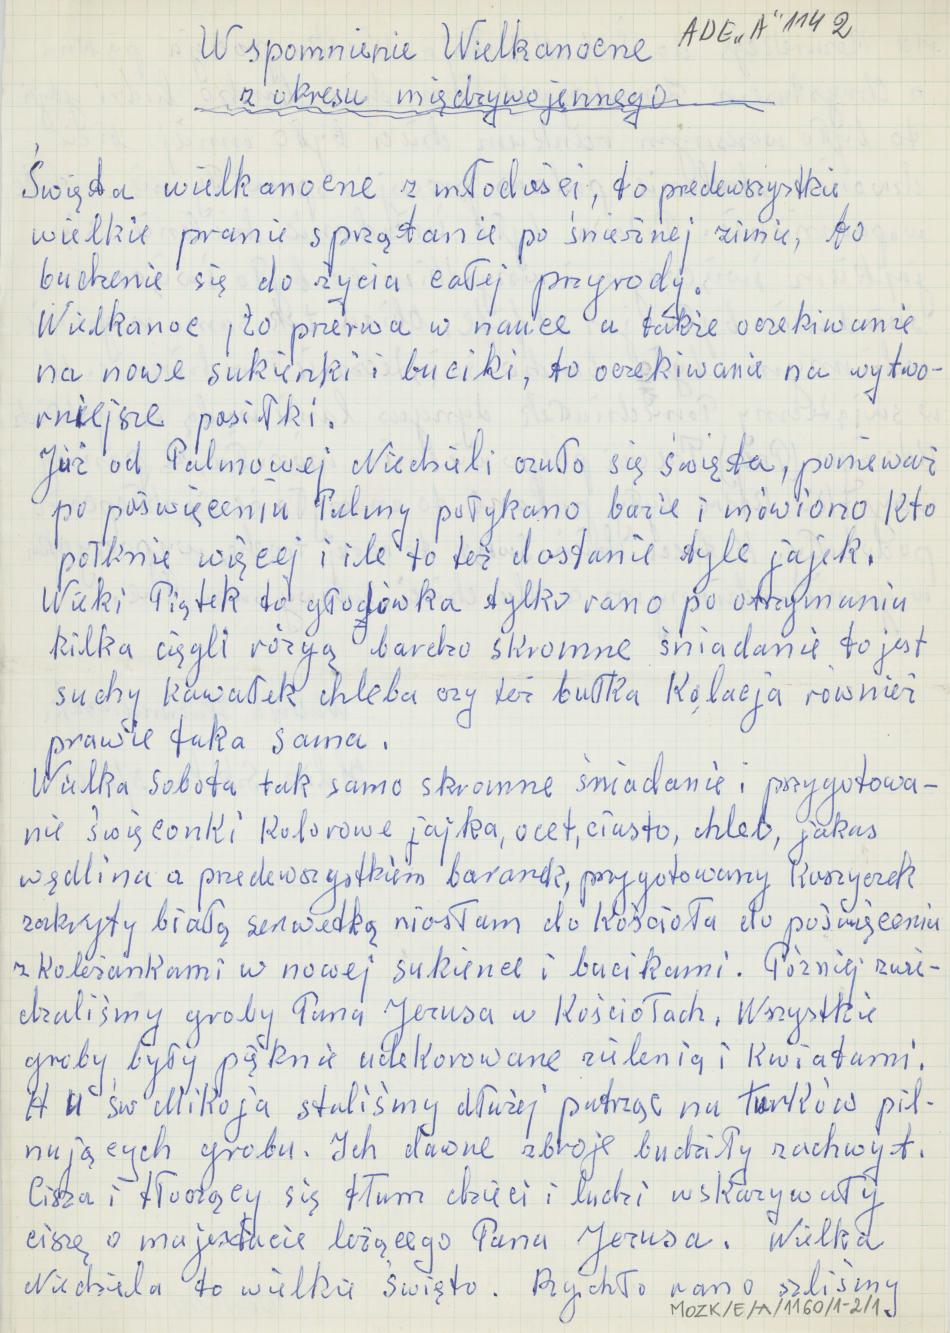 ADE„A" 114 2
Wspomnienie Wielkanocne
z okresu międzywojennego
Święta wielkanocne z młodości, to przedewszystkie
wielkie pranie sprzątanie po śnieżnej zimie, to
budzenie się do życia całej przyrody.
Wielkanoc, to przerwa w nauce a także oczekiwanie
na nowe sukienki i buciki, to oczekiwanie na wytwo-
rniejsze posiłki.
Już od Palmowej Niedzieli czuło się święta, ponieważ
po poświęceniu Palmy połykano bazie i mówiono Kto
połknie więcej i ile to też dostanie tyle jajek.
Wieki Piątek to głodówka tylko rano po otrzymaniu
kilka cięgli rózgą bardzo skromne śniadanie to jest
suchy kawałek chleba czy też bułka Kolacja również
prawie taka sama.
Wielka Sobota tak samo skromne śniadanie i przygotowa-
nie święconki Kolorowe jajka, ocet, ciasto, chleb, jakas
wędlina a przedewszystkiem baranek, przygotowany Koszyczek
zakryty białą serwetką niosłam do Kościoła do poświęceniu
z Koleżankami w nowej sukience i bucikami. Później zwie-
dzaliśmy groby Pana Jezusa w Kościołach. Wszystkie
groby były pięknie udekorowane zielenią i Kwiatami.
A u św Mikoja staliśmy dłużej patrząc na turków pil-
nujących grobu. Ich dawne zbroje budziły zachwyt.
Cisza i tłoczący się tłum dzieci i ludzi wskazywały
ciszę o majestacie leżącego Pana Jezusa. Wielka
Niedziela to wielkie Święto. Rychło rano szliśmy
MOZK/E/A/1160/1-2/1